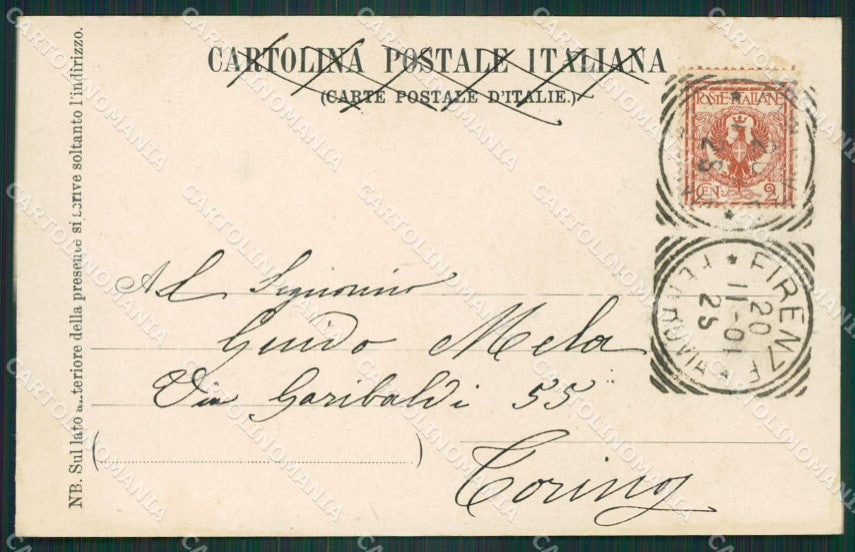 CARTOLINA POSTALE ITALIANA
(CARTE POSTALE D'ITALIE.)
POSTE ITALIANE
CEN. 2
FIRENZE
20
11-01
25
FERROVIA
Al Signorino
Guido Mela
Via Garibaldi 55
Torino
NB. Sul lato anteriore della presente si scrive soltanto l'indirizzo.
CARTOLINOMANIA